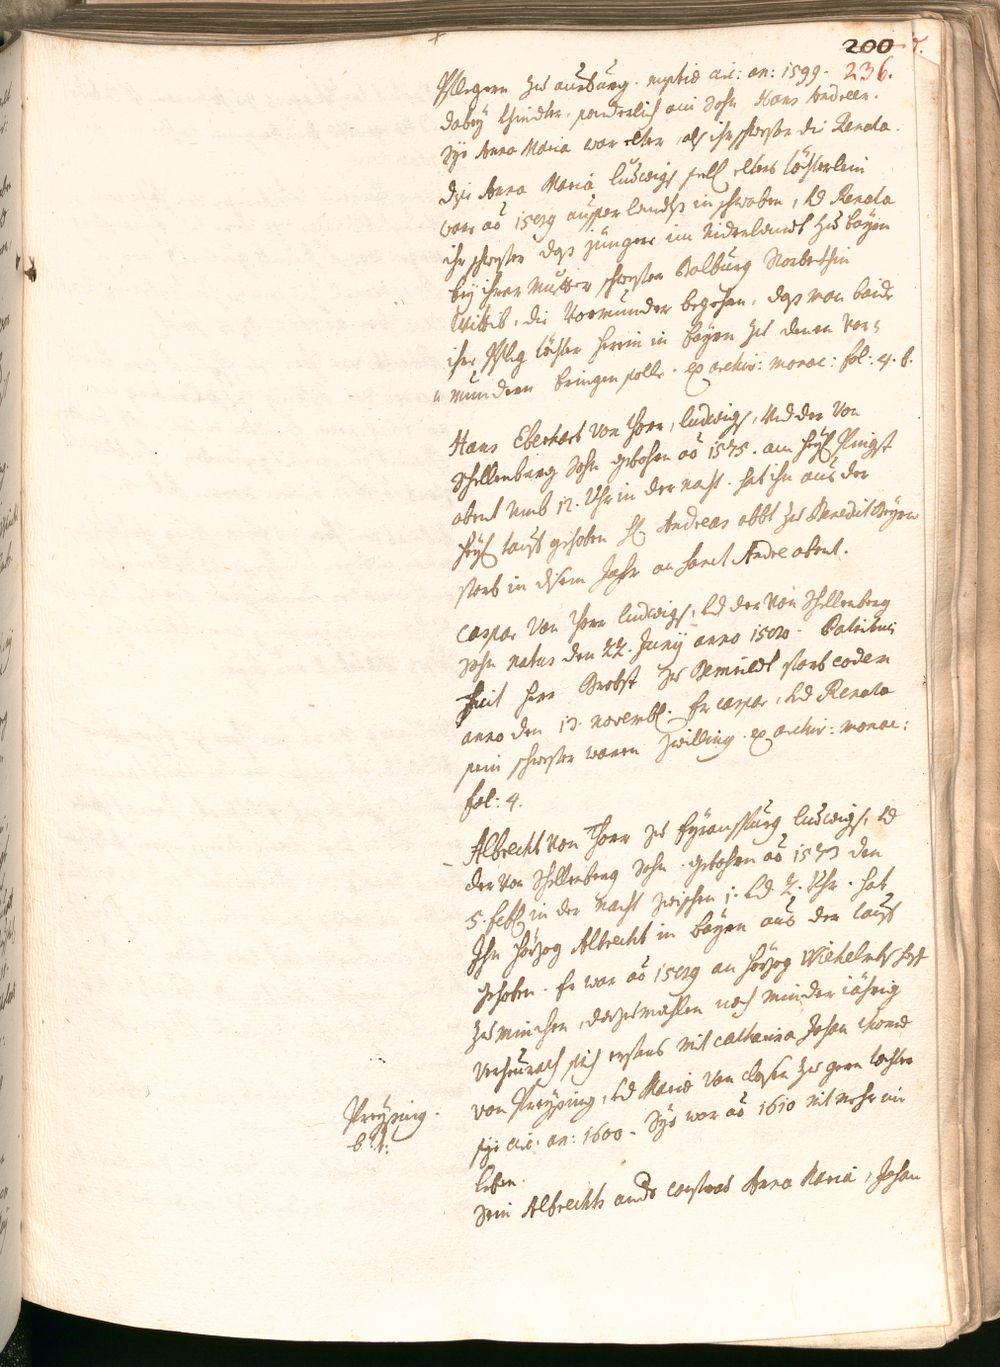 200 7.
236.
Pflegern zu aurburg. nuptiæ circ: an: 1599.
dabey Khinder, sonderlich ein Sohn Hans Andreen.
Sye Anna Maria war elter, als ihr schwester die Renata.
dise Anna Maria ludwigs sell: elters töchterlein
ware aõ 1589 ausser landts in schwaben, vnd Renata
ihr schwester das jüngere im Niderlandt zu bayrn
bey ihrer Mutter schwester Walburg
Wittib, die Vormünder begehrn, das man baide
ihre Pfleg töchter herein in Bayrn zu denen Vor=
mündern bringen solle. ex archiv: monac: fol: 4. b.
Hans Eberhart von Thorr, ludwigs, vnd der von
Schellenberg Sohn gebohrn aõ 1575. am heyl Pfingst
abent vmb 12. Uhr in der nacht. hat ihn aus der
heyl tauff gehoben H Andreas abbt zu Benedict Beyrn
starb in disem Jahr an sanct Andre abent.
Caspar von Thorr ludwigs, vnd der von Schellenberg
Sohn natus den 22. Juny anno 1580. Patrinus
fuit herr Brobst zu starb eodem
anno den 13. novemb. Er caspar, vnd Renata
sein schwester waren zwilling. ex archiv: monac:
fol: 4.
Albrecht von Thorr zu Eyraspurg ludwigs, vnd
der von Schellenberg Sohn. gebohrn aõ 1573 den
5. feb in der nacht zwischen 1. vnd 2. Uhr. hat
Ihn herzog Albrecht in Bayrn aus der tauff
gehoben. Er war aõ 1589 an herzog Wilhelmbs hoff
zu München, dazumahlen noch minder iährig
verheurath sich erstens mit catharina Johan
von Preysing, vnd Mariæ von closen zu gern tochter
sye circ: an: 1600. Sye war aõ 1610 nit mehr im
leben.
Preysing.
Sein Albrechts andere Anna Maria, Johan